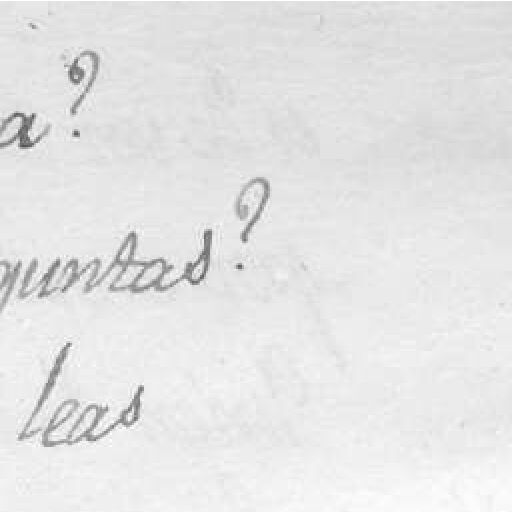 a?
guntas?
leas